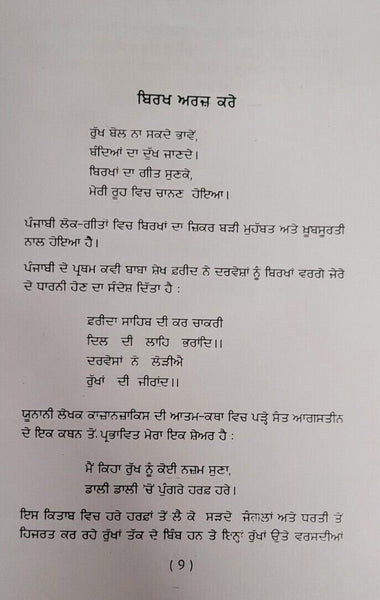 ਬਿਰਖ ਅਰਜ਼ ਕਰੇ
ਰੁੱਖ ਬੋਲ ਨਾ ਸਕਦੇ ਭਾਵੇਂ,
ਬੰਦਿਆਂ ਦਾ ਦੁੱਖ ਜਾਣਦੇ।
ਬਿਰਖਾਂ ਦਾ ਗੀਤ ਸੁਣਕੇ,
ਮੇਰੀ ਰੂਹ ਵਿਚ ਚਾਨਣ ਹੋਇਆ।
ਪੰਜਾਬੀ ਲੋਕ-ਗੀਤਾਂ ਵਿਚ ਬਿਰਖਾਂ ਦਾ ਜ਼ਿਕਰ ਬੜੀ ਮੁਹੱਬਤ ਅਤੇ ਖ਼ੂਬਸੂਰਤੀ
ਨਾਲ ਹੋਇਆ ਹੈ।
ਪੰਜਾਬੀ ਦੇ ਪ੍ਰਥਮ ਕਵੀ ਬਾਬਾ ਸ਼ੇਖ ਫ਼ਰੀਦ ਨੇ ਦਰਵੇਸ਼ਾਂ ਨੂੰ ਬਿਰਖਾਂ ਵਰਗੇ ਜੇਰੇ
ਦੇ ਧਾਰਨੀ ਹੋਣ ਦਾ ਸੰਦੇਸ਼ ਦਿੱਤਾ ਹੈ :
ਫ਼ਰੀਦਾ ਸਾਹਿਬ ਦੀ ਕਰ ਚਾਕਰੀ
ਦਿਲ ਦੀ ਲਾਹਿ ਭਰਾਂਦਿ।।
ਦਰਵੇਸਾਂ ਨੋ ਲੋੜੀਐ
ਰੁੱਖਾਂ ਦੀ ਜੀਰਾਂਦ।।
ਯੂਨਾਨੀ ਲੇਖਕ ਕਾਜ਼ਾਨਜ਼ਾਕਿਸ ਦੀ ਆਤਮ-ਕਥਾ ਵਿਚ ਪੜ੍ਹੇ ਸੰਤ ਆਗਸਤੀਨ
ਦੇ ਇਕ ਕਥਨ ਤੋਂ ਪ੍ਰਭਾਵਿਤ ਮੇਰਾ ਇਕ ਸ਼ੇਅਰ ਹੈ :
ਮੈਂ ਕਿਹਾ ਰੁੱਖ ਨੂੰ ਕੋਈ ਨਜ਼ਮ ਸੁਣਾ,
ਡਾਲੀ ਡਾਲੀ 'ਚੋਂ ਪੁੰਗਰੇ ਹਰਫ਼ ਹਰੇ।
ਇਸ ਕਿਤਾਬ ਵਿਚ ਹਰੇ ਹਰਫ਼ਾਂ ਤੋਂ ਲੈ ਕੇ ਸੜਦੇ ਜੰਗਲਾਂ ਅਤੇ ਧਰਤੀ ਤੋਂ
ਹਿਜਰਤ ਕਰ ਰਹੇ ਰੁੱਖਾਂ ਤੱਕ ਦੇ ਬਿੰਬ ਹਨ ਤੇ ਇਨ੍ਹਾਂ ਰੁੱਖਾਂ ਉਤੇ ਵਰਸਦੀਆਂ
(9)